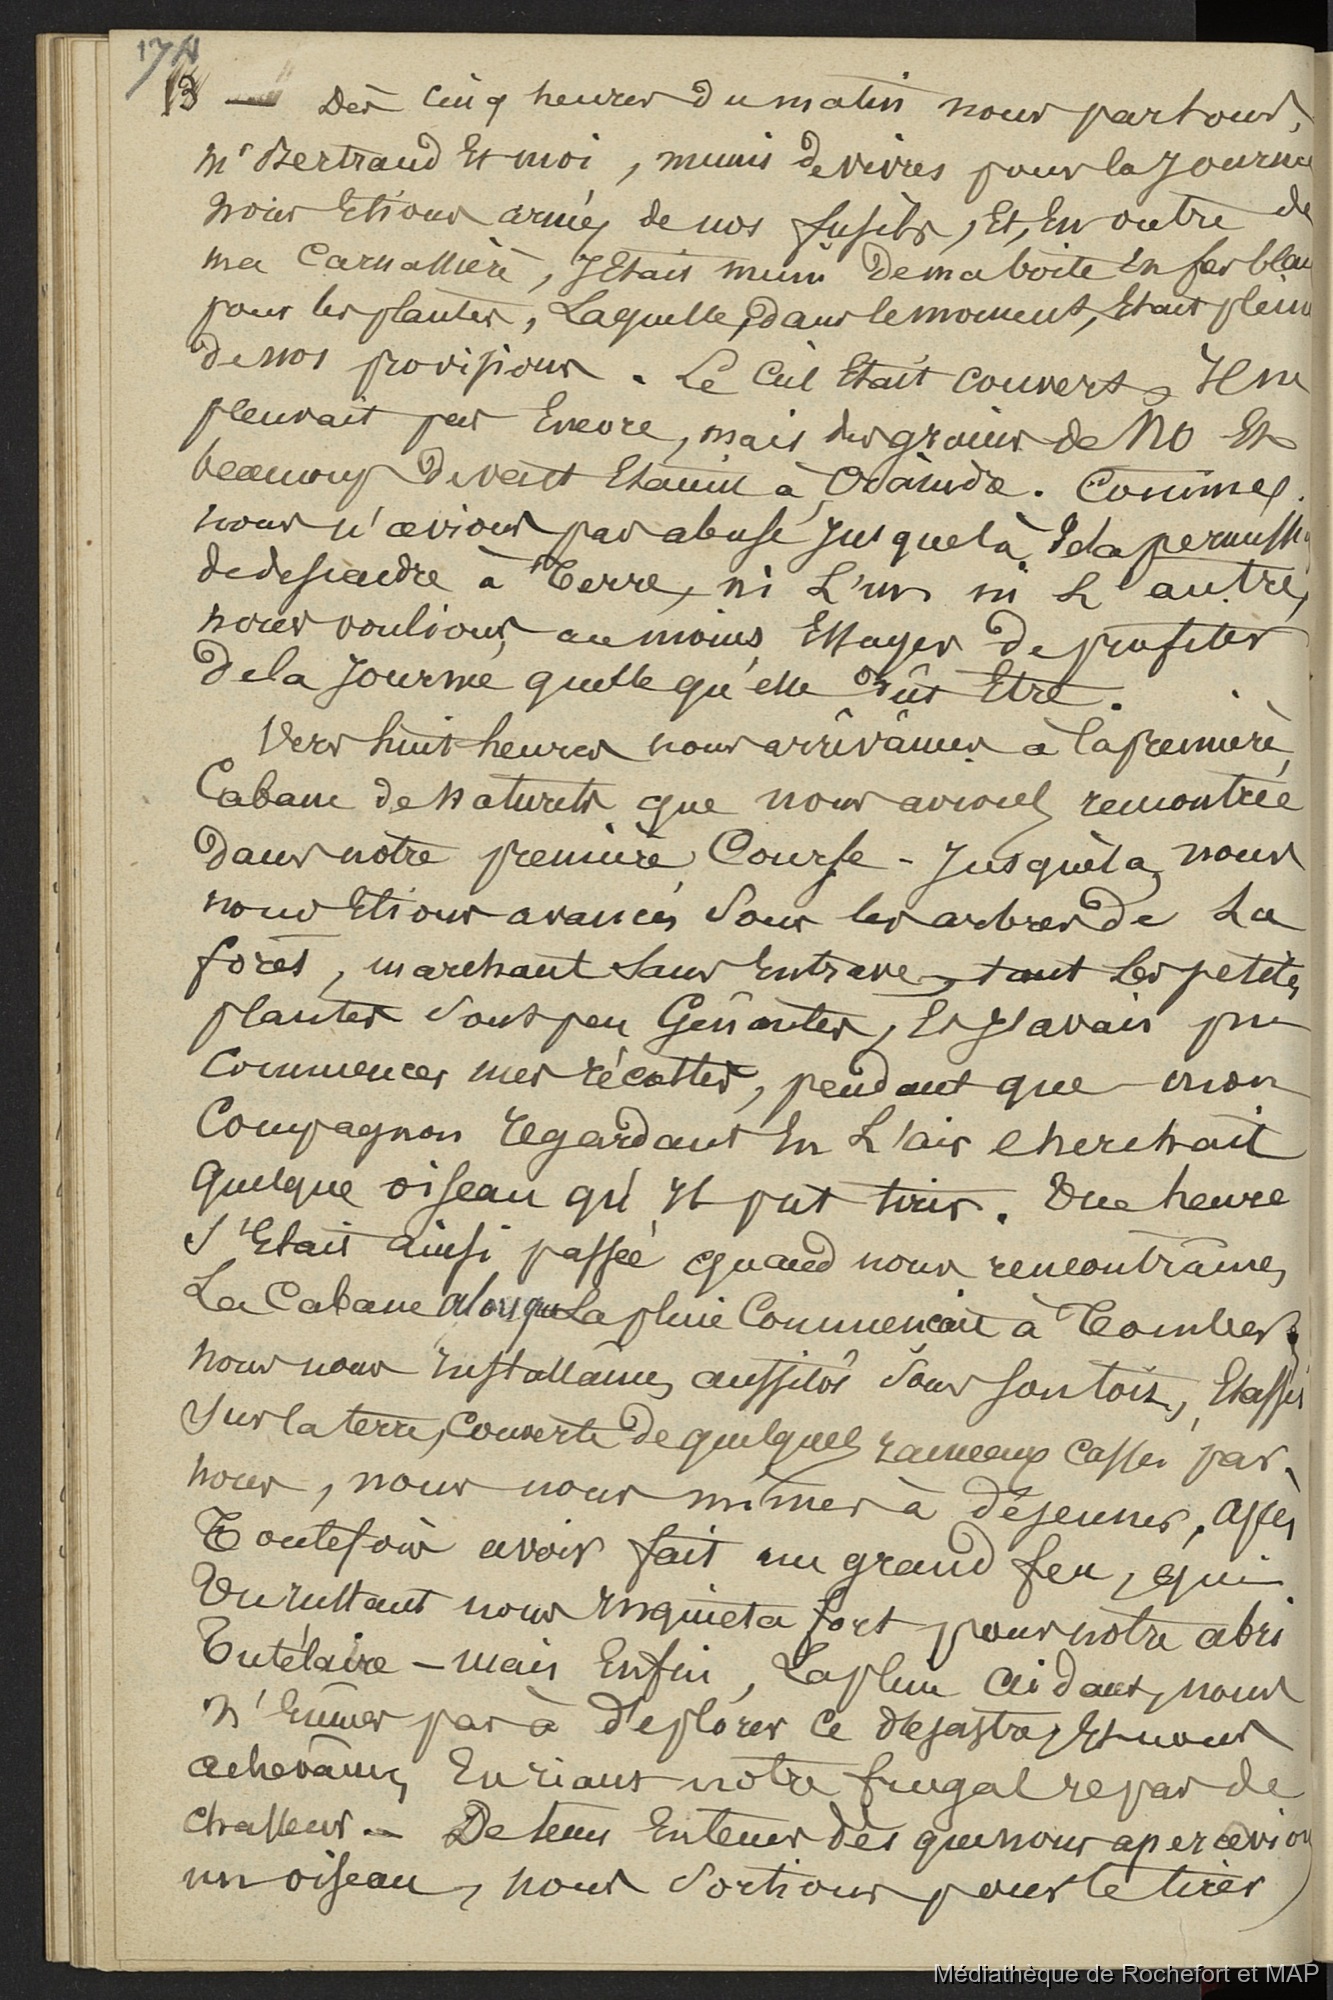 174
13 — Dès cinq heures du matin nous partons,
Mr Bertrand et moi, munis de vivres pour la journée
nous étions armés de nos fusils, et, en outre de
ma carnassière, j'étais muni de ma boite en fer blanc
pour les plantes, laquelle, dans le moment, était pleine
de nos provisions. Le ciel était couvert, il ne
pleuvait pas encore, mais des grains de NO et
beaucoup de vent étaient à craindre. Comme
nous n'avions pas abusé jusque là de la permission
de descendre à terre, ni l'un ni l'autre,
nous voulions, au moins, essayer de profiter
de la journée quelle qu'elle dût être.
Vers huit heures nous arrivâmes à la première
cabane de naturels que nous avions rencontrée
dans notre première course - Jusque là, nous
nous étions avancés sous les arbres de la
forêt, marchant sans entrave, tant les petites
plantes sont peu gênantes, et j'avais pu
commencer mes récoltes, pendant que mon
compagnon regardant en l'air cherchait
quelque oiseau qu'il put tirer. Une heure
s'était ainsi passée quand nous rencontrâmes
la cabane alors que la pluie commençait à tomber,
nous nous installâmes aussitôt sous son toit, et assis
sur la terre, couverte de quelques rameaux cassés par
nous, nous nous mîmes à déjeuner, après
toutefois avoir fait un grand feu, qui
un instant nous inquiéta fort pour notre abri
tutélaire — mais enfin, la pluie aidant, nous
n'eûmes pas à déplorer ce désastre, et nous
achevâmes en riant notre frugal repas de
chasseur. — De tems en tems dès que nous apercevions
un oiseau, nous sortions pour le tirer
Médiathèque de Rochefort et MAP